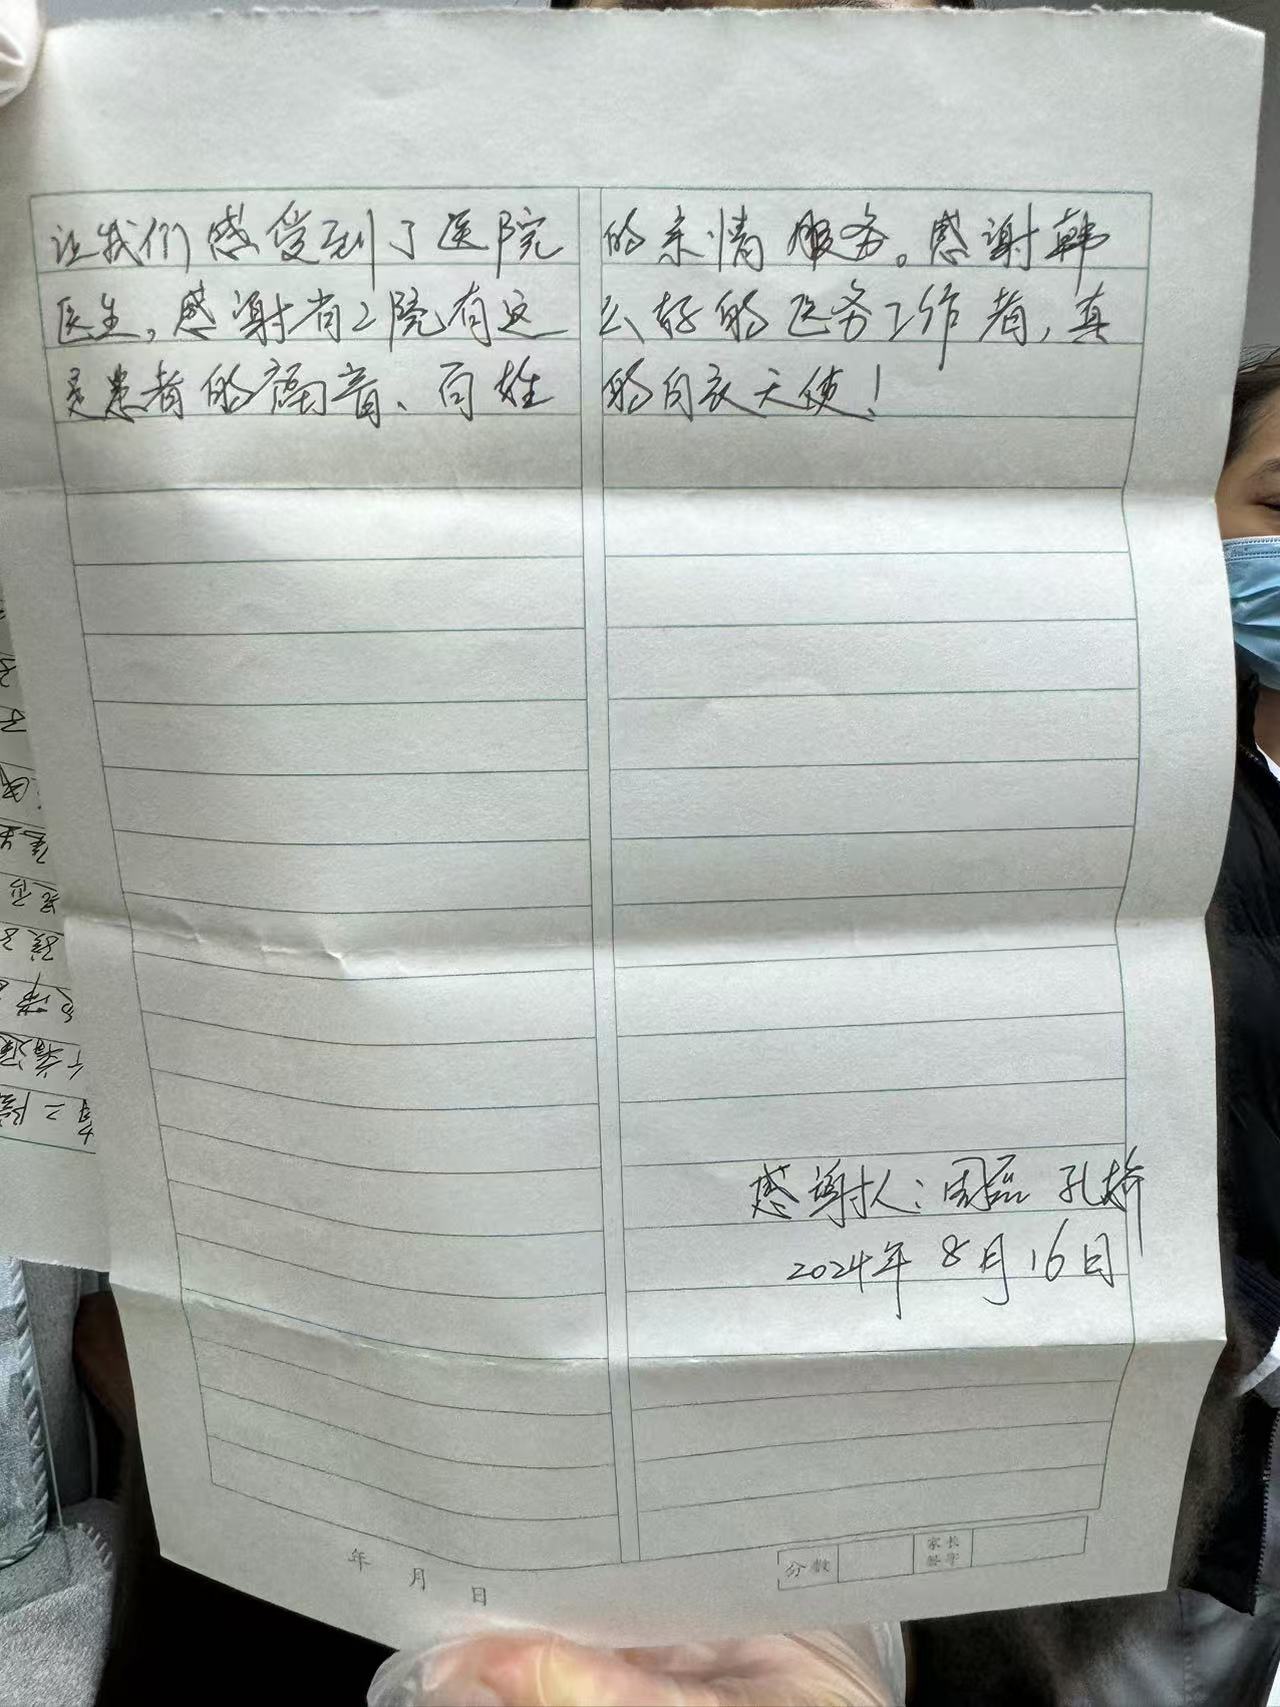 让我们感受到了医院的亲情服务。感谢韩
医生，感谢省二院有这么好的医务工作者，真
是患者的福音、百姓的白衣天使！
感谢人：周磊 孔娇
2024年 8月16日
年 月 日
分数
家长签字